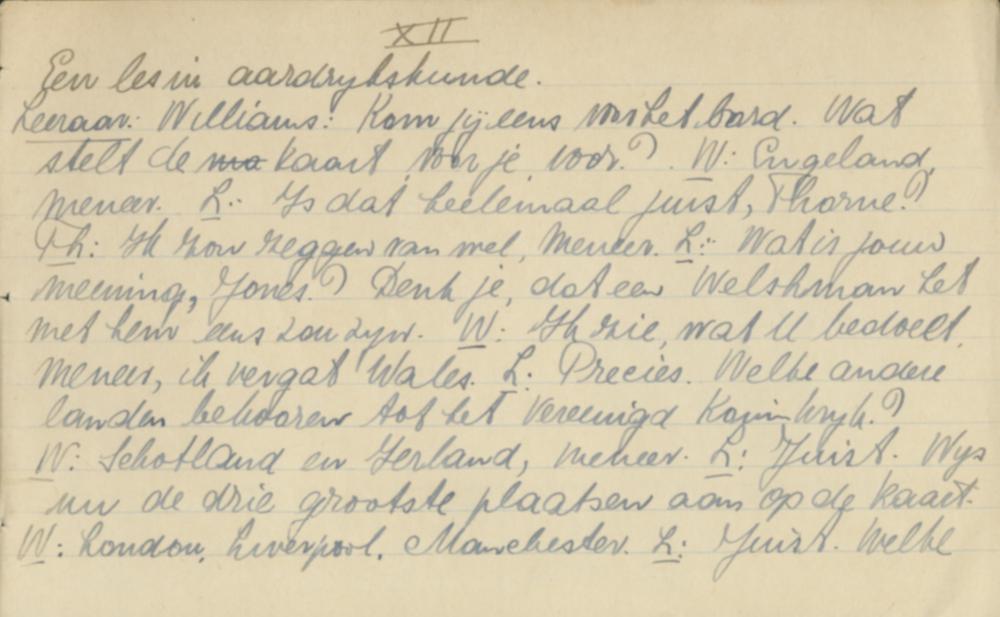 XII
Een les in aardrykskunde.
Leeraar: Williams: Kom jij eens voor het bord. Wat
stelt de ma kaart voor je voor? W: Engeland,
meneer. L: Is dat heelemaal juist, Thorne?
Th: Ik zou zeggen van wel, meneer. L: Wat is jouw
meening, Jones? Denk je, dat een Welshman het
met hem eens zou zyn. W: Ik zie, wat U bedoelt,
meneer, ik vergat Wales. L: Precies. Welke andere
landen behooren tot het Vereenigd Koninkryk?
W: Schotland en Ierland, meneer. L: Juist. Wys
nu de drie grootste plaatsen aan op de kaart.
W: London, Liverpool, Manchester. L: Juist. Welke